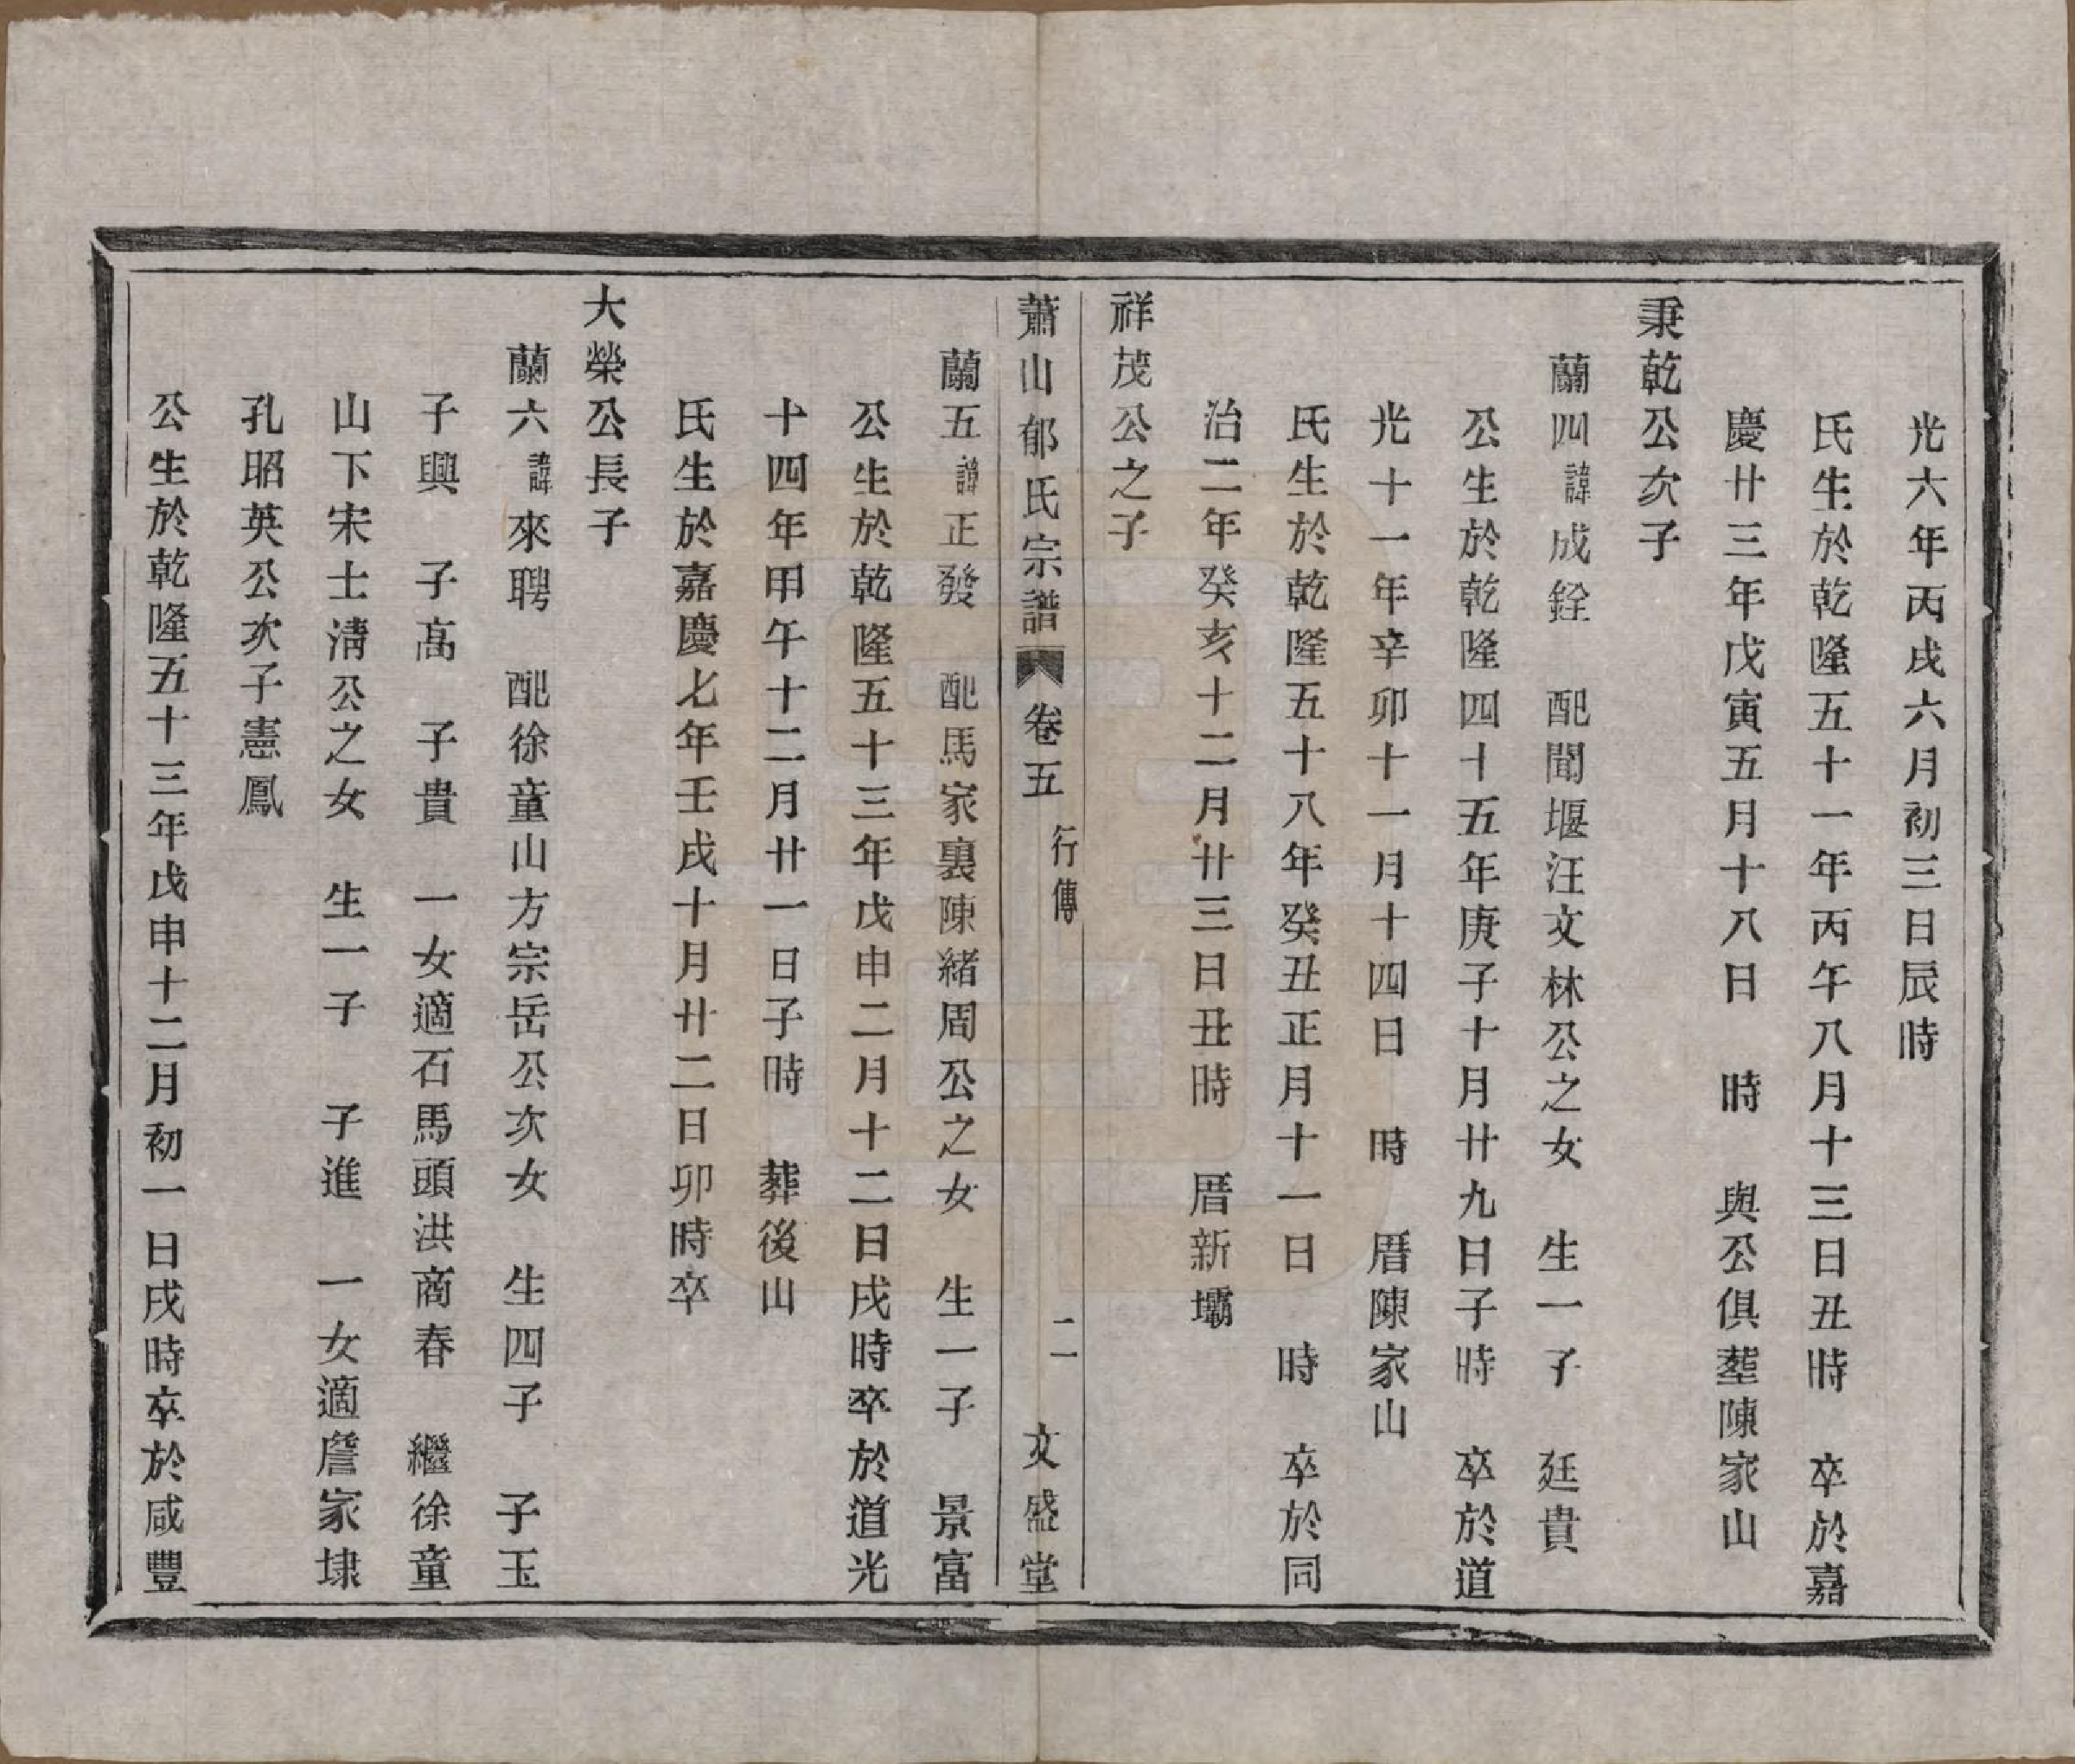 光六年丙戌六月初三日辰時
氏生於乾隆五十一年丙午八月十三日丑時　卒於嘉
慶廿三年戊寅五月十八日　時　與公俱塟陳家山
秉乾公次子
蘭四諱成銓　配聞堰汪文林公之女　生一子　廷貴
公生於乾隆四十五年庚子十月廿九日子時　卒於道
光十一年辛卯十一月十四日　時　厝陳家山
氏生於乾隆五十八年癸丑正月十一日　時　卒於同
治二年癸亥十二月廿三日丑時　厝新壩
祥茂公之子
蕭山郁氏宗譜　卷五　行傳　二　文盛堂
蘭五諱正發　配馬家裏陳緒周公之女　生一子　景富
公生於乾隆五十三年戊申二月十二日戌時卒於道光
十四年甲午十二月廿一日子時　葬後山
氏生於嘉慶七年壬戌十月廿二日卯時卒
大榮公長子
蘭六諱來聘　配徐童山方宗岳公次女　生四子　子玉
子興　子高　子貴　一女適石馬頭洪商春　繼徐童
山下宋士清公之女　生一子　子進　一女適詹家埭
孔昭英公次子憲鳳
公生於乾隆五十三年戊申十二月初一日戌時卒於咸豐